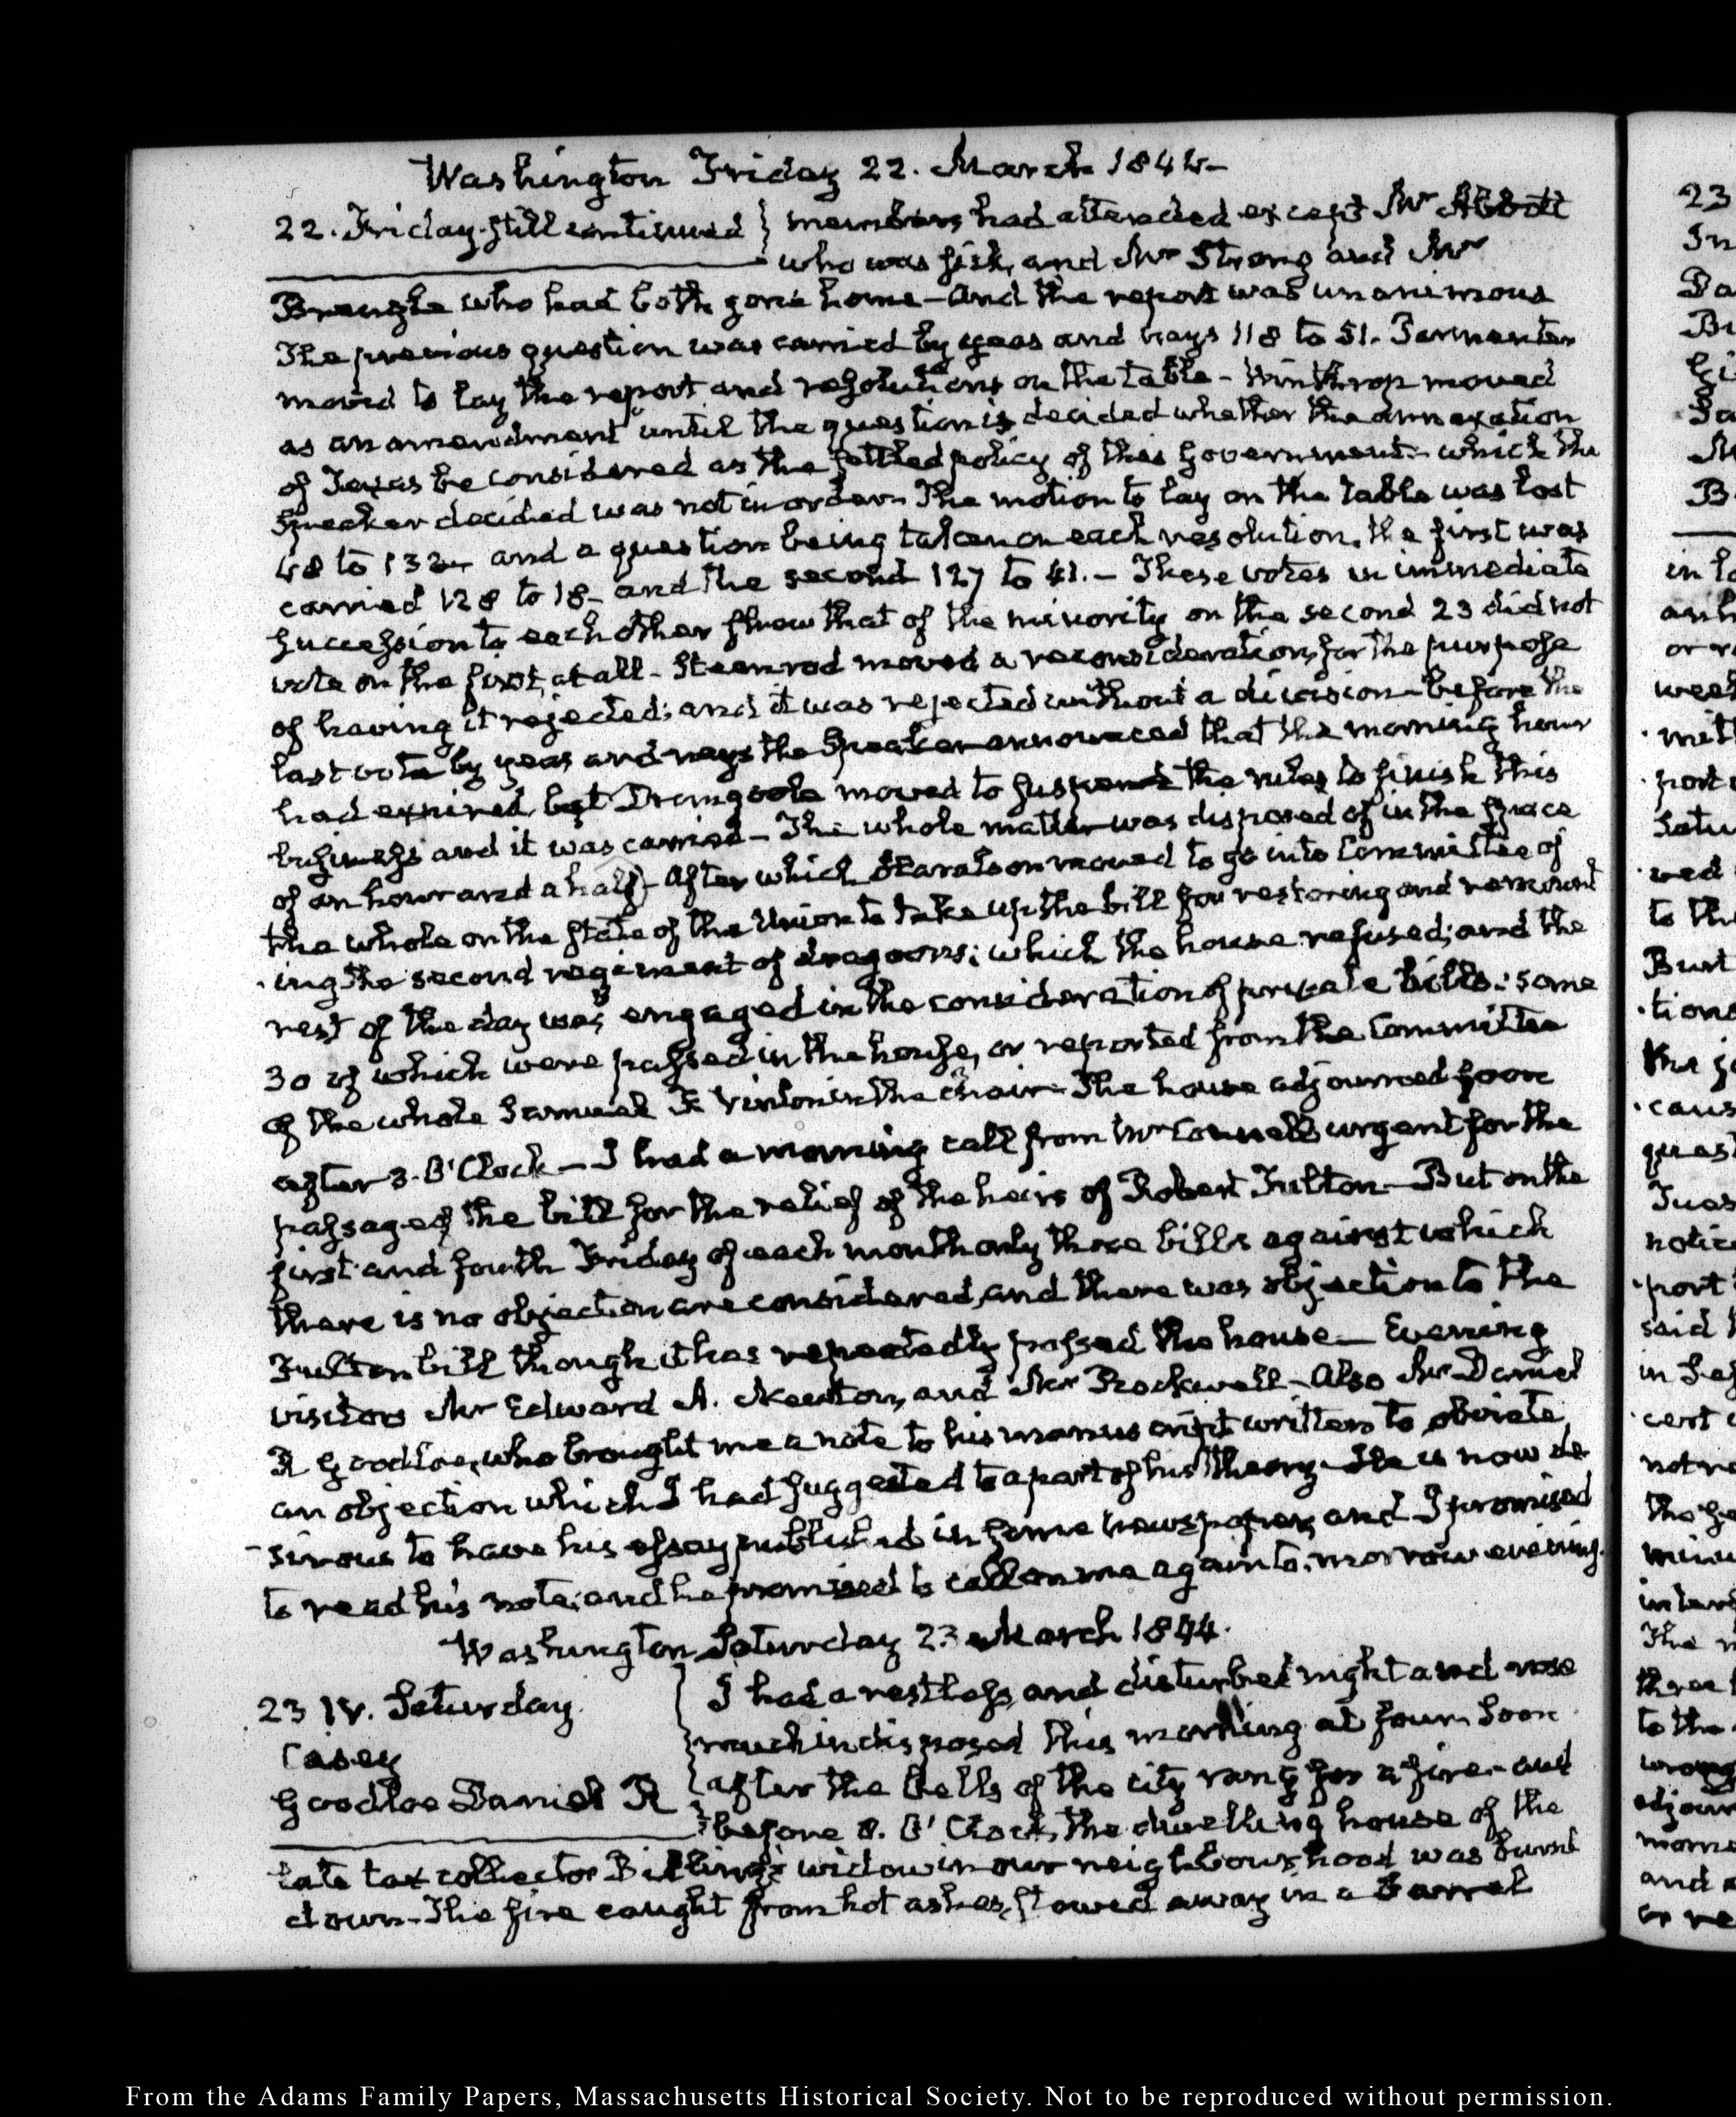 Washington Friday 22. March 1844-
22. Friday. still continued } members had attended except Mr Abbott
who was sick, and Mr Strong and Mr
Brengle who had both gone home - And the report was unanimous
The previous question was carried by yeas and nays 118 to 51. Parmenter
moved to lay the report and resolutions on the table - Winthrop moved
as an amendment until the question is decided whether the annexation
of Texas be considered as the settled policy of this Government - which the
Speaker decided was not in order - The motion to lay on the table was lost
48 to 132 - and a question being taken on each resolution, the first was
carried 128 to 18 - and the second 127 to 41. - These votes in immediate
succession to each other shew that of the minority on the second 23 did not
vote on the first, at all - Steenrod moved a reconsideration, for the purpose
of having it rejected; and it was rejected without a division - before the
last vote by yeas and nays the Speaker announced that the morning hour
had expired but Dromgoole moved to suspend the rules to finish this
business and it was carried - The whole matter was disposed of in the space
of an hour and a half - After which Haralson moved to go into Committee of
the whole on the state of the Union to take up the bill for restoring and remount
-ing the second regiment of dragoons; which the house refused; and the
rest of the day was engaged in the consideration of private bills: some
30 of which were passed in the house, or reported from the Committee
of the whole Samuel F. Vinton in the Chair - The house adjourned soon
after 3. O'Clock - I had a morning call from Mr Connell urgent for the
passage of the bill for the relief of the heirs of Robert Fulton - But on the
first and fourth Friday of each month only those bills against which
there is no objection are considered, and there was objection to the
Fulton bill though it has repeatedly passed the house - Evening
visitors Mr Edward A. Newton, and Mr Rockwell - Also Mr Daniel
R Goodloe, who brought me a note to his manuscript written to obviate
an objection which I had suggested to a part of his theory - He is now de
-sirous to have his essay published in some newspaper, and I promised
to read his note; and he promised to call on me again to-morrow evening.
Washington Saturday 23 March 1844.
23 IV. Saturday } I had a restless, and disturbed night and rose
much indisposed this morning at four. Soon
Casey
after the bells of the city rang for a fire - and
Goodloe Daniel R
before 8. O'Clock, the dwelling house of the
late tax collector Billing's widow in our neighbourhood was burnt
down - The fire caught from hot ashes, stowed away in a barrel
From the Adams Family Papers, Massachusetts Historical Society. Not to be reproduced without permission.